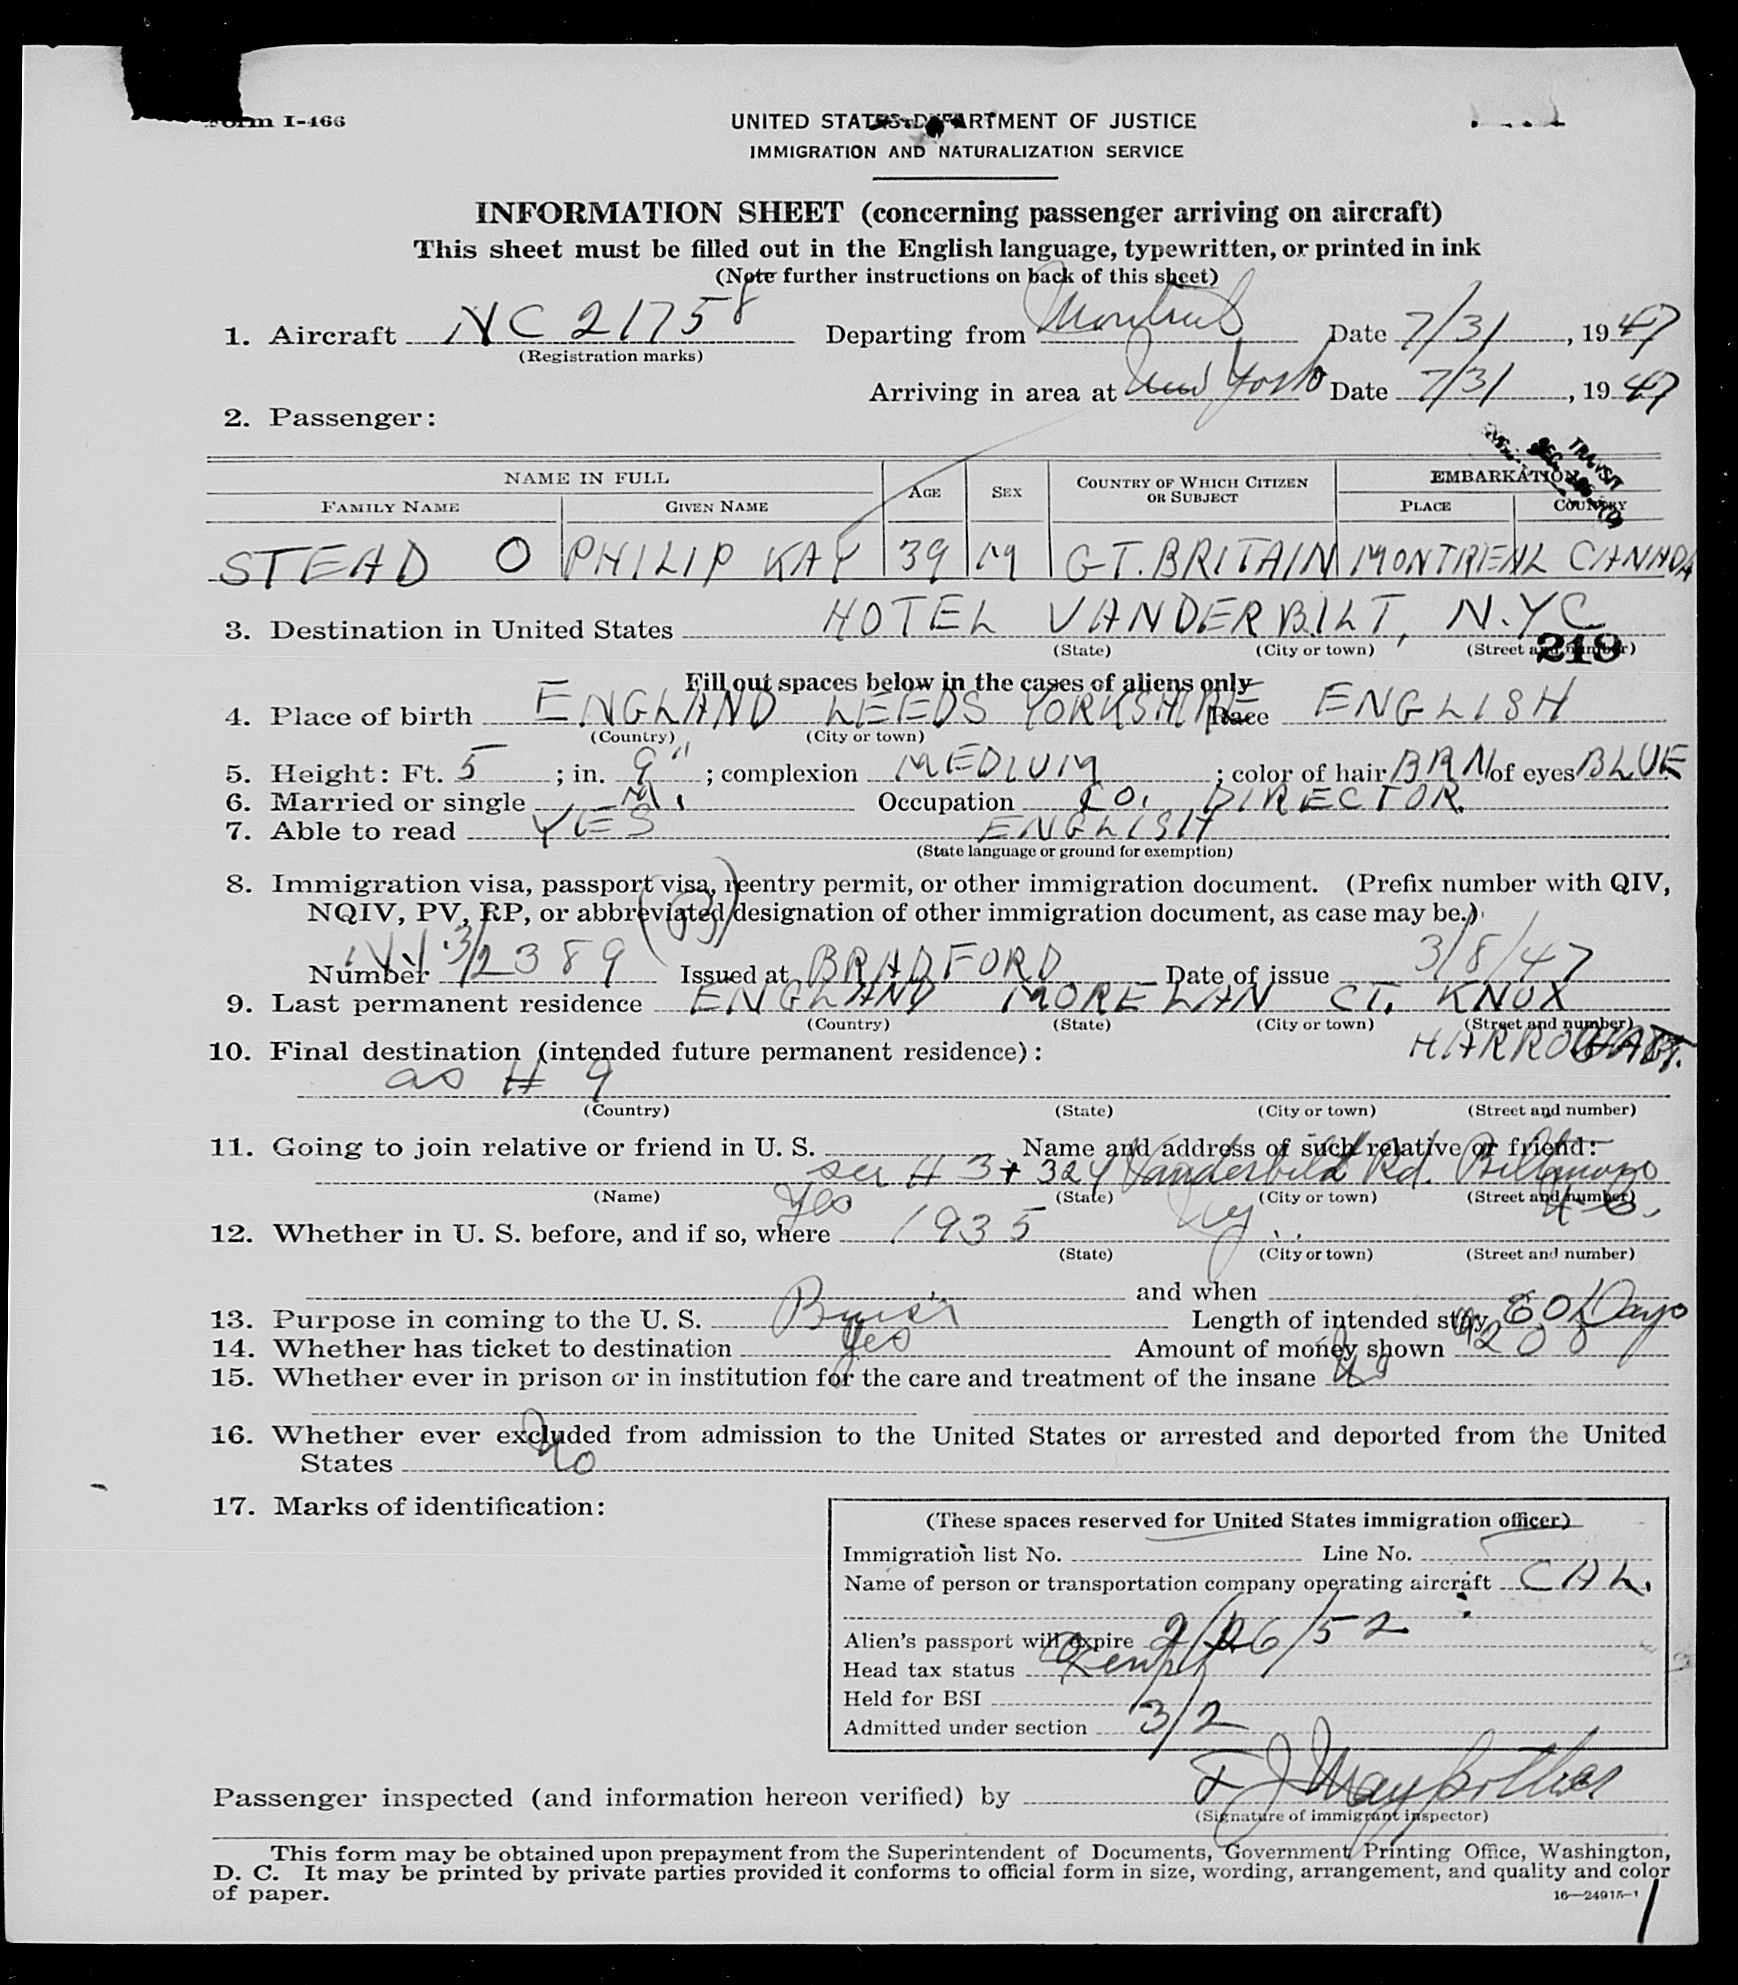 Form I-466
UNITED STATES DEPARTMENT OF JUSTICE
IMMIGRATION AND NATURALIZATION SERVICE
INFORMATION SHEET (concerning passenger arriving on aircraft)
This sheet must be filled out in the English language, typewritten, or printed in ink
(Note further instructions on back of this sheet)
1. Aircraft NC 21758 Departing from Montreal Date 7/31, 1947
(Registration marks)
Arriving in area at New York Date 7/31, 1947
2. Passenger:
TRANSIT
SEC.
NAME IN FULL AGE SEX COUNTRY OF WHICH CITIZEN OR SUBJECT EMBARKATION
FAMILY NAME GIVEN NAME PLACE COUNTRY
STEAD O PHILIP KAY 39 M GT. BRITAIN MONTREAL CANADA
3. Destination in United States HOTEL VANDERBILT, N.Y.C
(State) (City or town) (Street and number)
219
Fill out spaces below in the cases of aliens only
4. Place of birth ENGLAND LEEDS YORKSHIRE Race ENGLISH
(Country) (City or town)
5. Height: Ft. 5 ; in. 9" ; complexion MEDIUM ; color of hair BRN of eyes BLUE
6. Married or single M. Occupation CO. DIRECTOR.
7. Able to read YES ENGLISH
(State language or ground for exemption)
8. Immigration visa, passport visa, reentry permit, or other immigration document. (Prefix number with QIV,
NQIV, PV, RP, or abbreviated designation of other immigration document, as case may be.)
Number 3/2389 Issued at BRADFORD Date of issue 3/8/47
9. Last permanent residence ENGLAND MORELAN CT. KNOX
(Country) (State) (City or town) (Street and number)
10. Final destination (intended future permanent residence):
as # 9
(Country) (State) (City or town) (Street and number)
11. Going to join relative or friend in U. S. Name and address of such relative or friend:
see # 3 + 324 Vanderbilt Rd. Biltmore
(Name) (State) (City or town) (Street and number)
Yes
12. Whether in U. S. before, and if so, where 1935 NY
(State) (City or town) (Street and number)
and when
13. Purpose in coming to the U. S. Busi Length of intended stay 60 Days
14. Whether has ticket to destination Yes Amount of money shown 200
15. Whether ever in prison or in institution for the care and treatment of the insane No
16. Whether ever excluded from admission to the United States or arrested and deported from the United
States No
17. Marks of identification:
(These spaces reserved for United States immigration officer)
Immigration list No. Line No.
Name of person or transportation company operating aircraft CAL.
Alien's passport will expire 2/26/52
Head tax status
Held for BSI
Admitted under section 3/2
Passenger inspected (and information hereon verified) by
(Signature of immigrant inspector)
This form may be obtained upon prepayment from the Superintendent of Documents, Government Printing Office, Washington,
D. C. It may be printed by private parties provided it conforms to official form in size, wording, arrangement, and quality and color
of paper.
16—24915-1
1